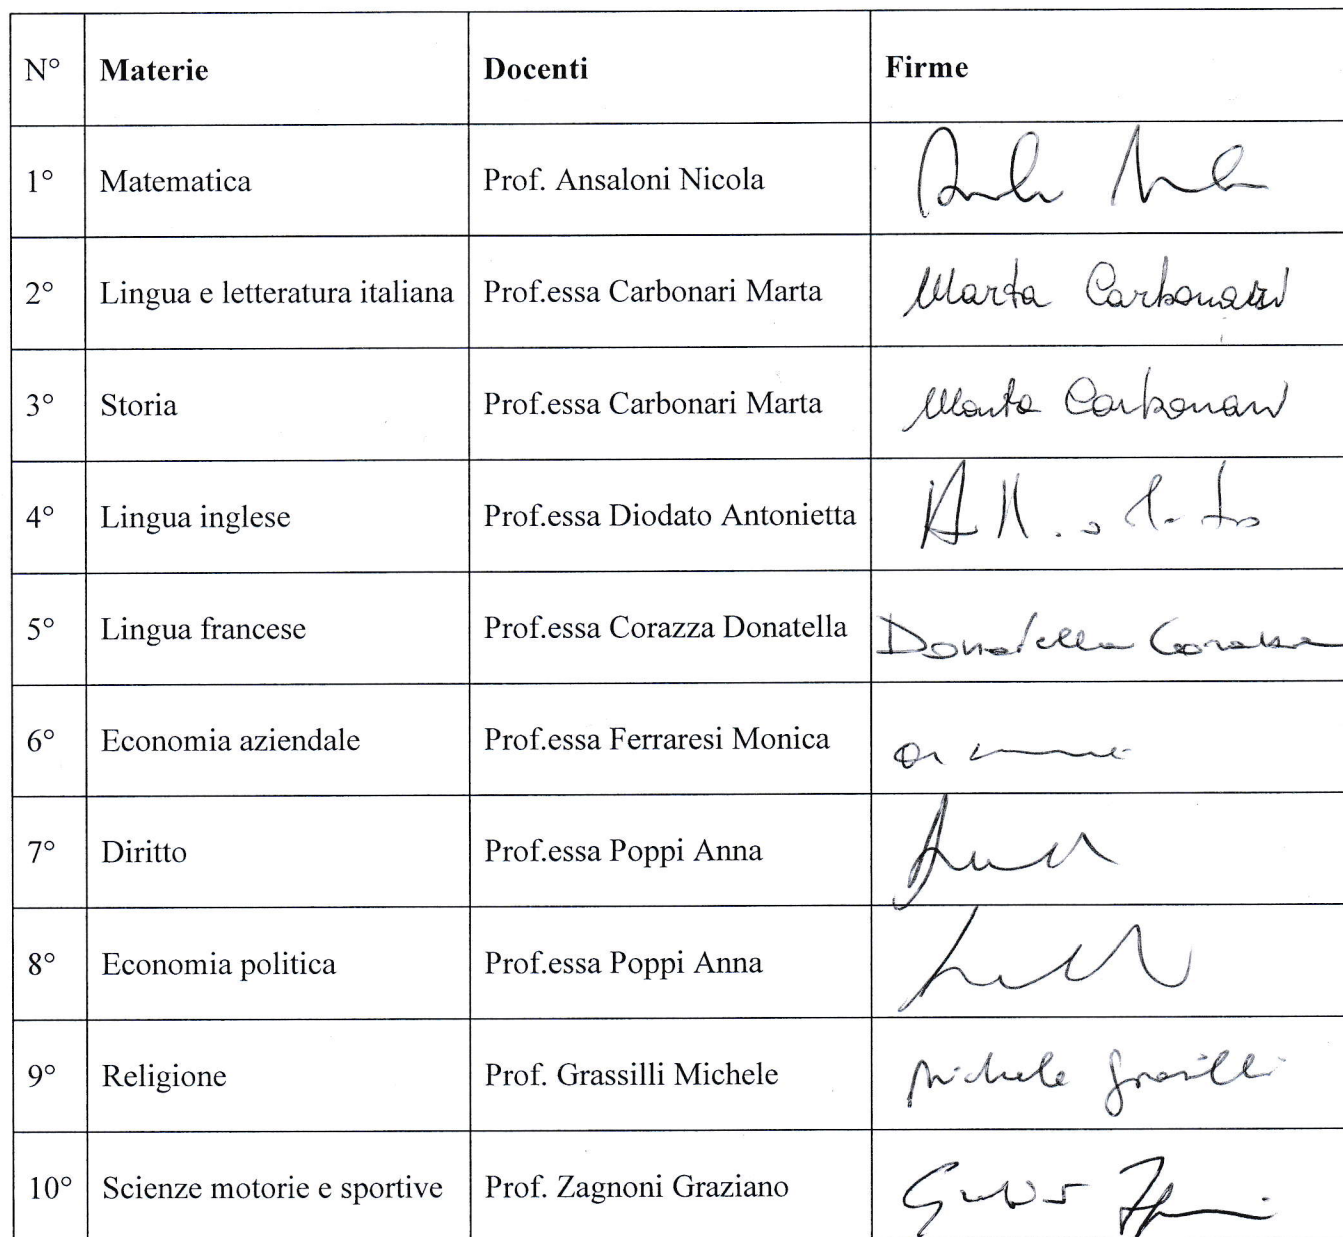 N° Materie Docenti Firme
1° Matematica Prof. Ansaloni Nicola
2° Lingua e letteratura italiana Prof.essa Carbonari Marta Marta Carbonari
3° Storia Prof.essa Carbonari Marta Marta Carbonari
4° Lingua inglese Prof.essa Diodato Antonietta
5° Lingua francese Prof.essa Corazza Donatella Donatella Corazza
6° Economia aziendale Prof.essa Ferraresi Monica
7° Diritto Prof.essa Poppi Anna
8° Economia politica Prof.essa Poppi Anna
9° Religione Prof. Grassilli Michele Michele Grassilli
10° Scienze motorie e sportive Prof. Zagnoni Graziano